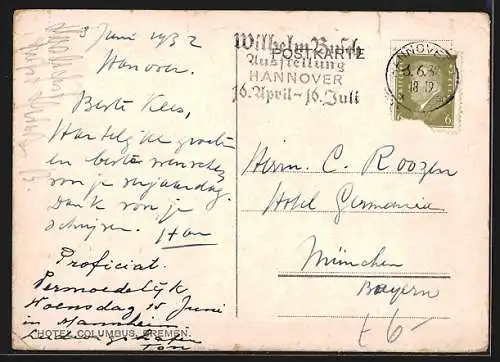 3 Juni 1932
Hannover.
Beste Kees,
Hartelijke groeten
en beste wenschen
voor je verjaardag.
Dank voor je
schrijven. Han
Proficiat.
Vermoedelijk
Woensdag 15 Juni
in Mannheim
Ton
HOTEL COLUMBUS, BREMEN.
POSTKARTE
Wilhelm Busch
Ausstellung
HANNOVER
16. April – 16. Juli
HANNOVER
3.6.32
6
Herrn C. Roozen
Hotel Germania
München
Bayern
6-